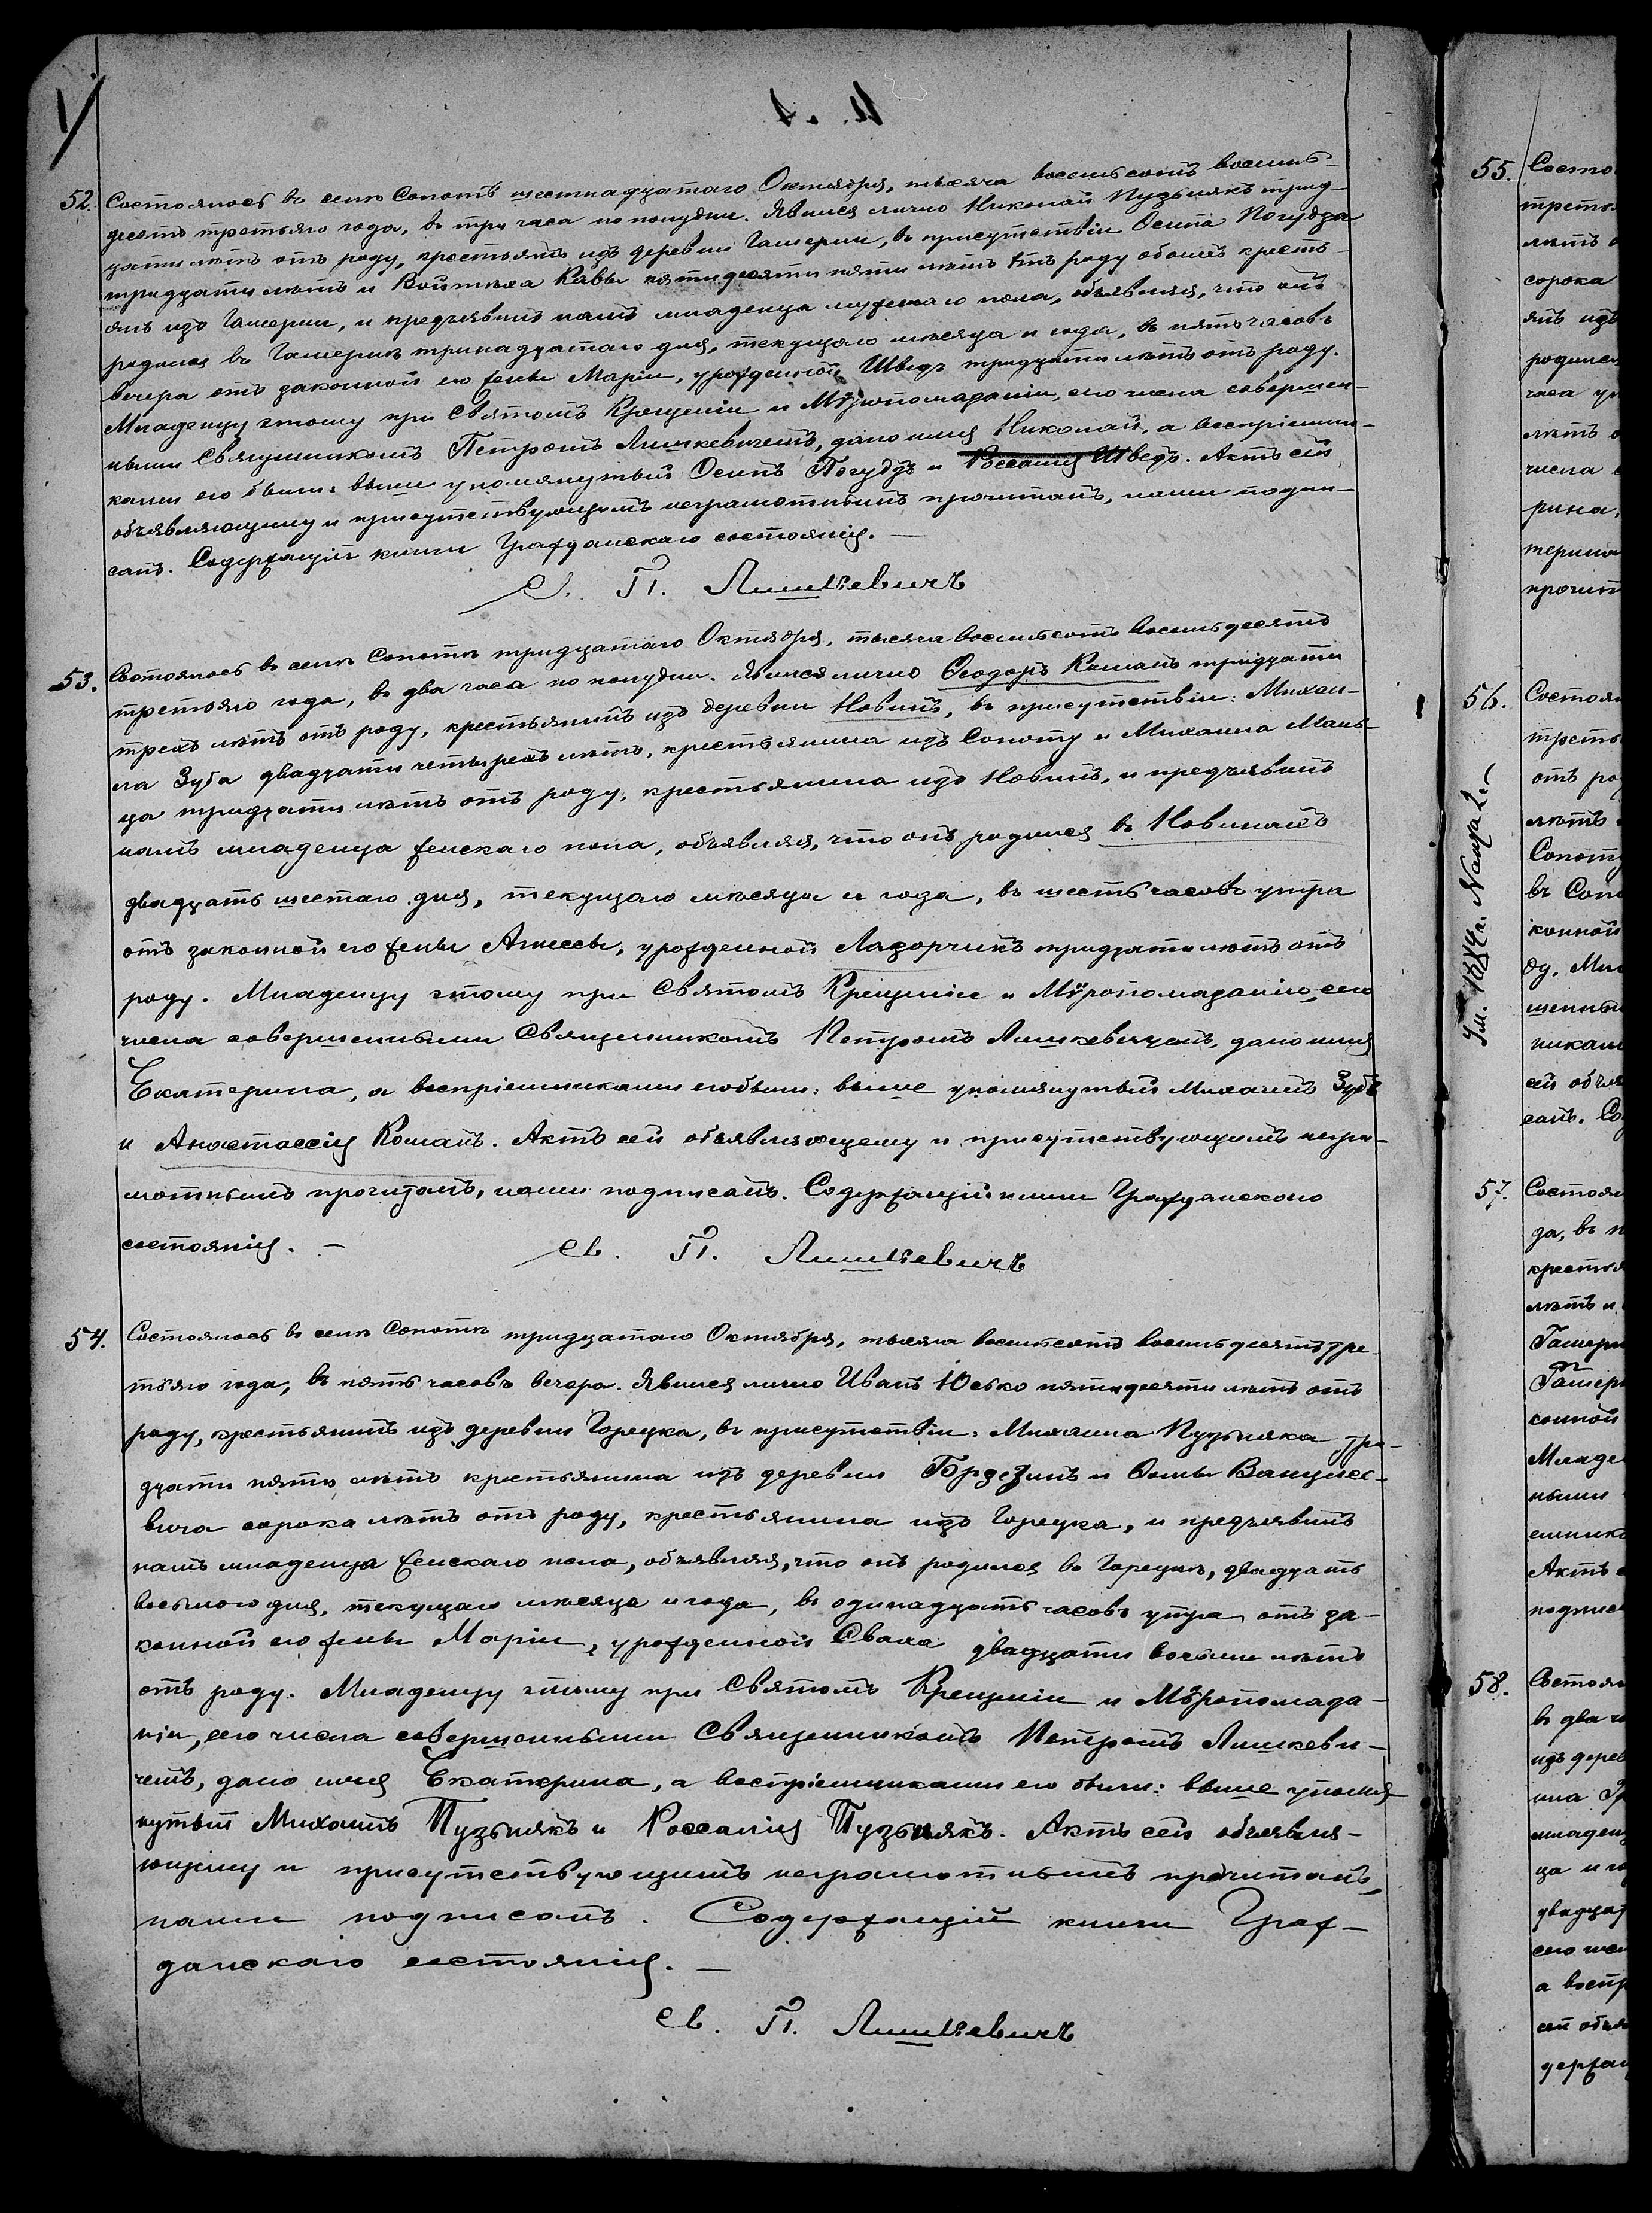 52. Состоялось въ селѣ Сопотѣ шестнадцатаго Октября, тысяча восемьсотъ восемь-
десятъ третьяго года, въ три часа по полудни. Явился лично Николай Пузьнякъ трид-
цати лѣтъ отъ роду, крестьянъ изъ деревни Гамерни, въ присутствіи Осипа Погудза
тридцати лѣтъ и Войтѣха Каввы пятидесяти пяти лѣтъ отъ роду обоихъ кресть-
янъ изъ Гамерни, и предъявилъ намъ младенца мужескаго пола, объявляя, что онъ
родился въ Гамернѣ тринадцатаго дня, текущаго мѣсяца и года, въ пять часовъ
вечера отъ законной его жены Маріи, урожденной Шведъ тридцати лѣтъ отъ роду.
Младенцу этому при Святомъ Крещеніи и Мѵропомазаніи, сего числа совершен-
ными Священникомъ Петромъ Лишкевичемъ, дано имя Николай, а воспріемни-
ками его были: выше упомянутый Осипъ Погудзъ и Россалія Шведъ. Актъ сей
объявляющему и присутствующимъ неграмотнымъ прочитанъ, нами подпи-
санъ. Содержащій книги Гражданскаго состоянія. —
С. П. Лишкевичъ
53. Состоялось въ селѣ Сопотѣ тридцатаго Октября, тысяча восемьсотъ восемьдесятъ
третьяго года, въ два часа по полудни. Явился лично Ѳеодоръ Команъ тридцати
трехъ лѣтъ отъ роду, крестьянинъ изъ деревни Новинъ, въ присутствіи: Михаи-
ла Зуба двадцати четырехъ лѣтъ, крестьянина изъ Сопоту и Михаила Маль-
ца тридцати лѣтъ отъ роду, крестьянина изъ Новинъ, и предъявилъ
намъ младенца женскаго пола, объявляя, что онъ родился въ Новинахъ
двадцать шестаго дня, текущаго мѣсяца и года, въ шесть часовъ утра
отъ законной его жены Агнессы, урожденной Лазорчикъ тридцати лѣтъ отъ
роду. Младенцу этому при Святомъ Крещеніи и Мѵропомазаніи, сего
числа совершенными Священникомъ Петромъ Лишкевичемъ, дано имя
Екатерина, а воспріемниками его были: выше упомянутый Михаилъ Зубъ
и Анастассія Команъ. Актъ сей объявляющему и присутствующимъ негра-
мотнымъ прочитанъ, нами подписанъ. Содержащій книги Гражданскаго
состоянія. —
Св. П. Лишкевичъ
54. Состоялось въ селѣ Сопотѣ тридцатаго Октября, тысяча восемьсотъ восемьдесятъ тре-
тьяго года, въ пять часовъ вечера. Явился лично Иванъ Юсько пятидесяти лѣтъ отъ
роду, крестьянинъ изъ деревни Горецка, въ присутствіи: Михаила Пузьняка три-
дцати пяти лѣтъ крестьянина изъ деревни и Ѳомы
вича сорока лѣтъ отъ роду, крестьянина изъ Горецка, и предъявилъ
намъ младенца женскаго пола, объявляя, что онъ родился въ Горецкѣ, двадцать
восьмого дня, текущаго мѣсяца и года, въ одинадцать часовъ утра, отъ за-
конной его жены Маріи, урожденной Свака двадцати восьми лѣтъ
отъ роду. Младенцу этому при Святомъ Крещеніи и Мѵропомаза-
ніи, сего числа совершенными Священникомъ Петромъ Лишкеви-
чемъ, дано имя Екатерина, а воспріемниками его были: выше упомя
нутый Михаилъ Пузьнякъ и Россалія Пузьнякъ. Актъ сей объявля-
ющему и присутствующимъ неграмотнымъ прочитанъ,
нами подписанъ. Содержащій книги Граж-
данскаго состоянія. —
Св. П. Лишкевичъ
55. Состо
треть
лѣтъ
сорока
янъ изъ
родился
часа
лѣтъ
числа
рина,
терина
прочит
56. Состоял
треть
отъ ро
лѣтъ
Сопоту
въ Сопо
конной
ду. Мла
шенны
никами
сей объя
санъ. Со
57. Состоял
да, въ
крестья
лѣтъ и
Гамерн
Гамерн
конной
Младе
ными
емнико
Актъ
подписа
58. Состоял
въ два ч
изъ дерев
ила
младенц
ца и го
двадцат
сего чис
а воспр
сей объя
держащ